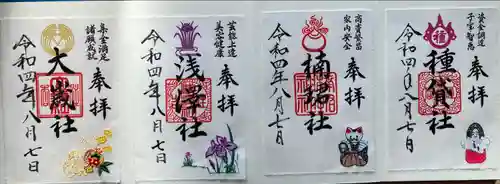 資金調達
子宝智恵
奉拝
種貸社
令和四年八月七日
家内安全
奉拝
楠珺社
令和四年八月七日
芸能上達
美容健康
奉拝
浅澤社
令和四年八月七日
集金満足
諸願成就
奉拝
大歳社
令和四年八月七日